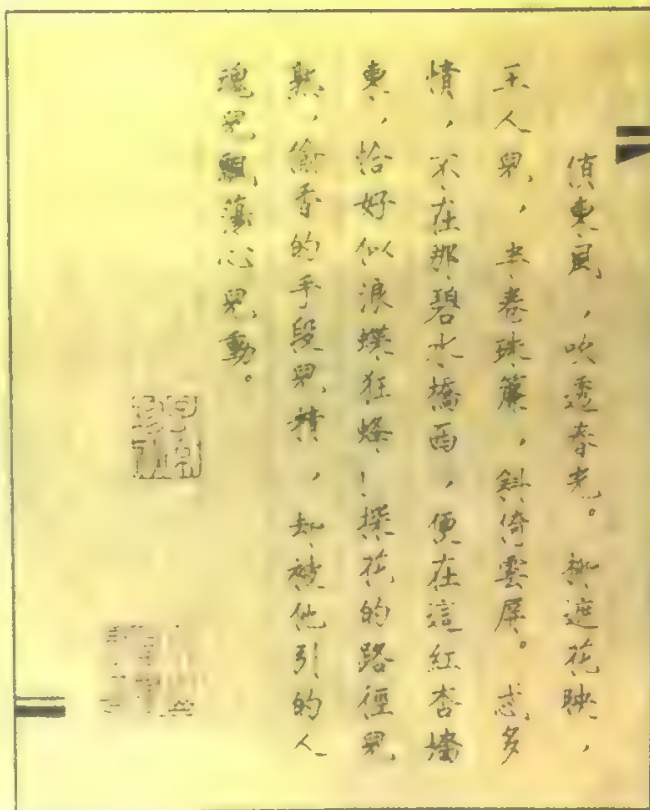 偵東風，吹透春光。柳遮花映，
玉人兒，半卷珠簾，斜倚雲屏。忒多
情，不在那碧水橋西，便在這紅杏墻
東，恰好似浪蝶狂蜂！探花的路徑兒
熟，偷香的手段兒精，却被他引的人
魂兒飄蕩心兒動。